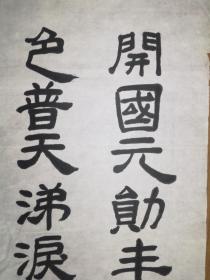 開國元勛丰
色普天涕淚